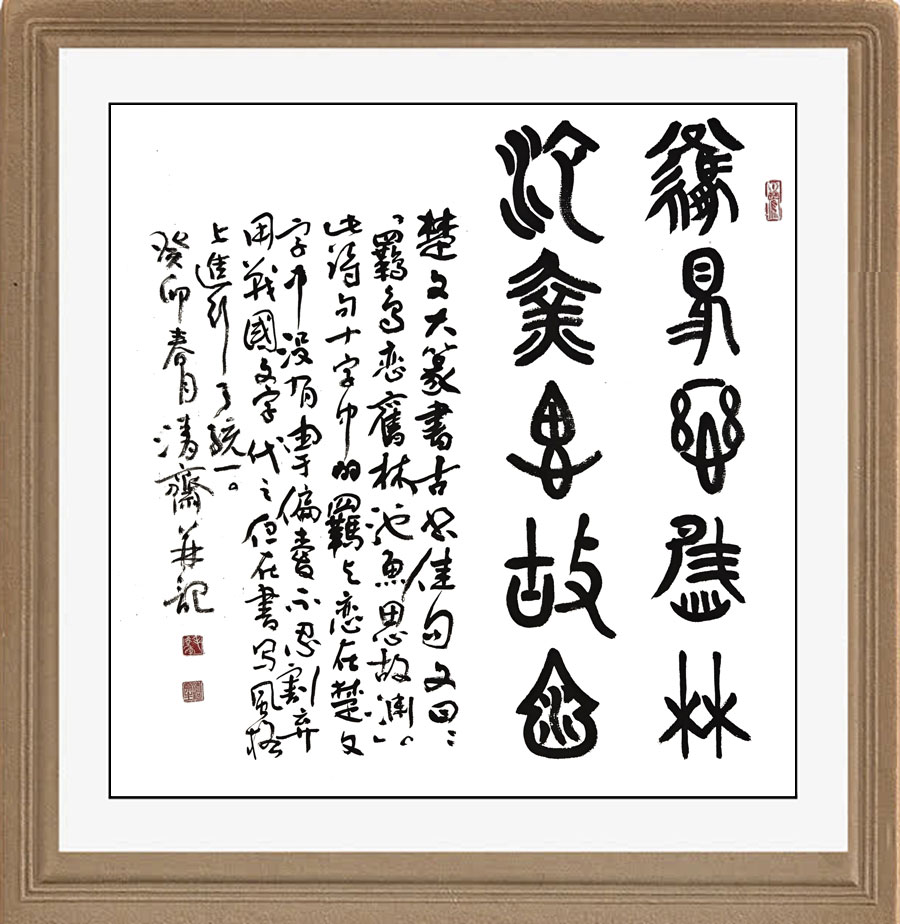 羈鳥戀舊林
池魚思故淵
楚文大篆書古佳句文曰：
「羈鳥恋舊林池魚思故渊」。
此詩句十字中的羈与恋在楚文
字中没有由于偏愛不忍割弃
用戰國文字代之但在書写風格
上進行了統一。
癸卯春月清齋并記